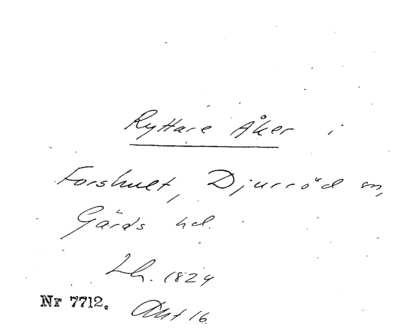 Ryttare Åker i
Forshult, Djurröd sn,
Gärds hd.
Lh. 1824
Nr 7712. Akt 16